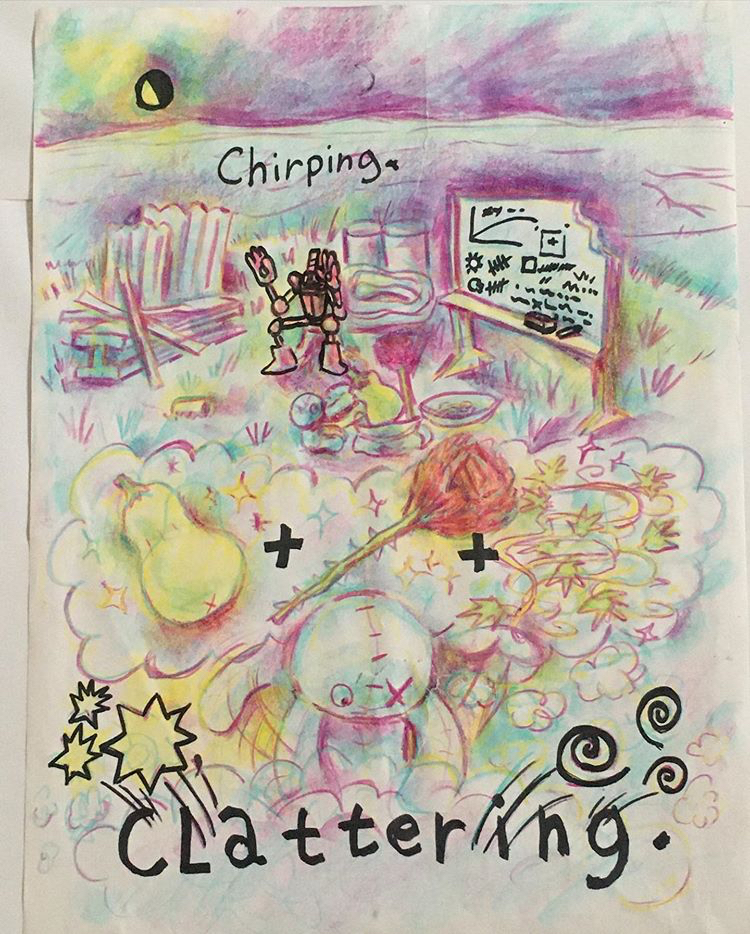 Chirping.
+ +
CLattering.